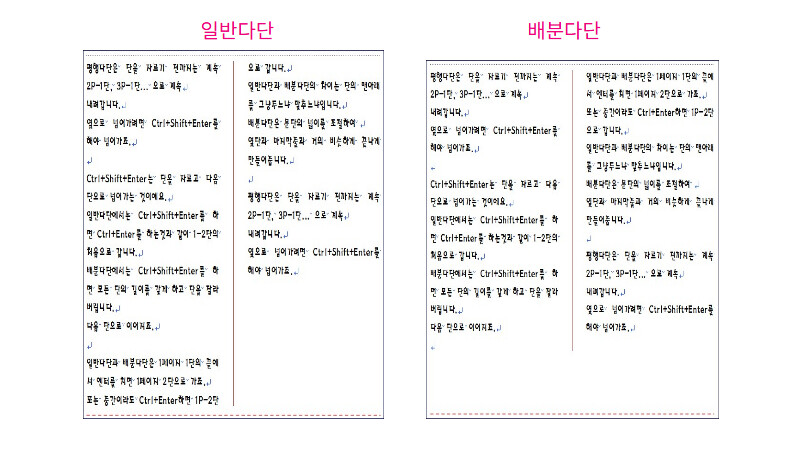 일반다단
평행다단은 단을 자르기 전까지는 계속
2P-1단, 3P-1단... 으로 계속
내려갑니다.
옆으로 넘어가려면 Ctrl+Shift+Enter를
해야 넘어가죠.
Ctrl+Shift+Enter는 단을 자르고 다음
단으로 넘어가는 것이에요.
일반다단에서는 Ctrl+Shift+Enter를 하
면 Ctrl+Enter를 하는것과 같이 1-2단의
처음으로 갑니다.
배분다단에서는 Ctrl+Shift+Enter를 하
면 모든 단의 길이를 같게 하고 단을 잘라
버립니다.
다음 단으로 이어지죠.
일반다단과 배분다단은 1페이지 1단의 끝에
서 엔터를 치면 1페이지 2단으로 가죠.
또는 중간이라도 Ctrl+Enter하면 1P-2단
으로 갑니다.
일반다단과 배분다단의 차이는 단의 맨아래
를 그냥두느냐 맞추느냐입니다.
배분다단은 문단의 넓이를 조절하여
앞단과 마지막줄과 거의 비슷하게 끝나게
만들어줍니다.
평행다단은 단을 자르기 전까지는 계속
2P-1단, 3P-1단... 으로 계속
내려갑니다.
옆으로 넘어가려면 Ctrl+Shift+Enter를
해야 넘어가죠.
배분다단
평행다단은 단을 자르기 전까지는 계속
2P-1단, 3P-1단... 으로 계속
내려갑니다.
옆으로 넘어가려면 Ctrl+Shift+Enter를
해야 넘어가죠.
Ctrl+Shift+Enter는 단을 자르고 다음
단으로 넘어가는 것이에요.
일반다단에서는 Ctrl+Shift+Enter를 하
면 Ctrl+Enter를 하는것과 같이 1-2단의
처음으로 갑니다.
배분다단에서는 Ctrl+Shift+Enter를 하
면 모든 단의 길이를 같게 하고 단을 잘라
버립니다.
다음 단으로 이어지죠.
일반다단과 배분다단은 1페이지 1단의 끝에
서 엔터를 치면 1페이지 2단으로 가죠.
또는 중간이라도 Ctrl+Enter하면 1P-2단
으로 갑니다.
일반다단과 배분다단의 차이는 단의 맨아래
를 그냥두느냐 맞추느냐입니다.
배분다단은 문단의 넓이를 조절하여
앞단과 마지막줄과 거의 비슷하게 끝나게
만들어줍니다.
평행다단은 단을 자르기 전까지는 계속
2P-1단, 3P-1단... 으로 계속
내려갑니다.
옆으로 넘어가려면 Ctrl+Shift+Enter를
해야 넘어가죠.